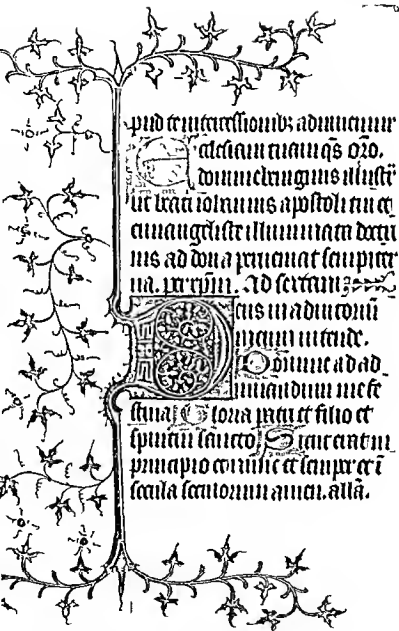 pud te intercessionibus adiuuemur
Ecclesiam tuam qs oro.
domine benignus illustra
ut beati iohannis apostoli tui et
euuangeliste illuminata doctri
nis ad dona perueniat sempiter
na. per xpm. Ad sextam
Deus in adiutoriu
meum intende.
Domine ad ad
iuuandum me fe
stina Gloria patri et filio et
spiritui sancto Sicut erat in
principio et nunc et semper et i
secula seculorum amen. alla.